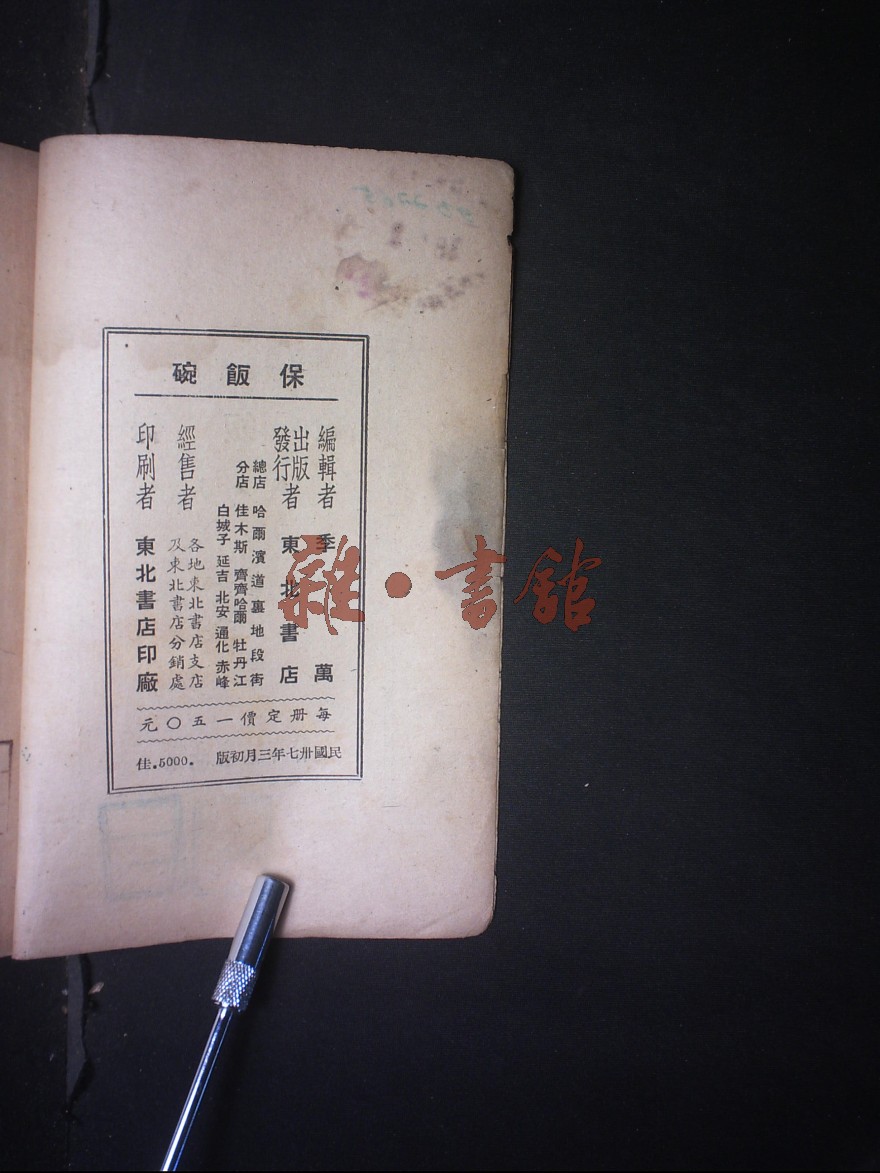 保飯碗
編輯者 季萬
出版
發行者 東北書店
總店 哈爾濱道裏地段街
分店 佳木斯 齊齊哈爾 牡丹江
白城子 延吉 北安 通化 赤峰
經售者 各地東北書店支店
及東北書店分銷處
印刷者 東北書店印廠
每册定價一五〇元
民國卅七年三月初版 5000.佳
雜·書館